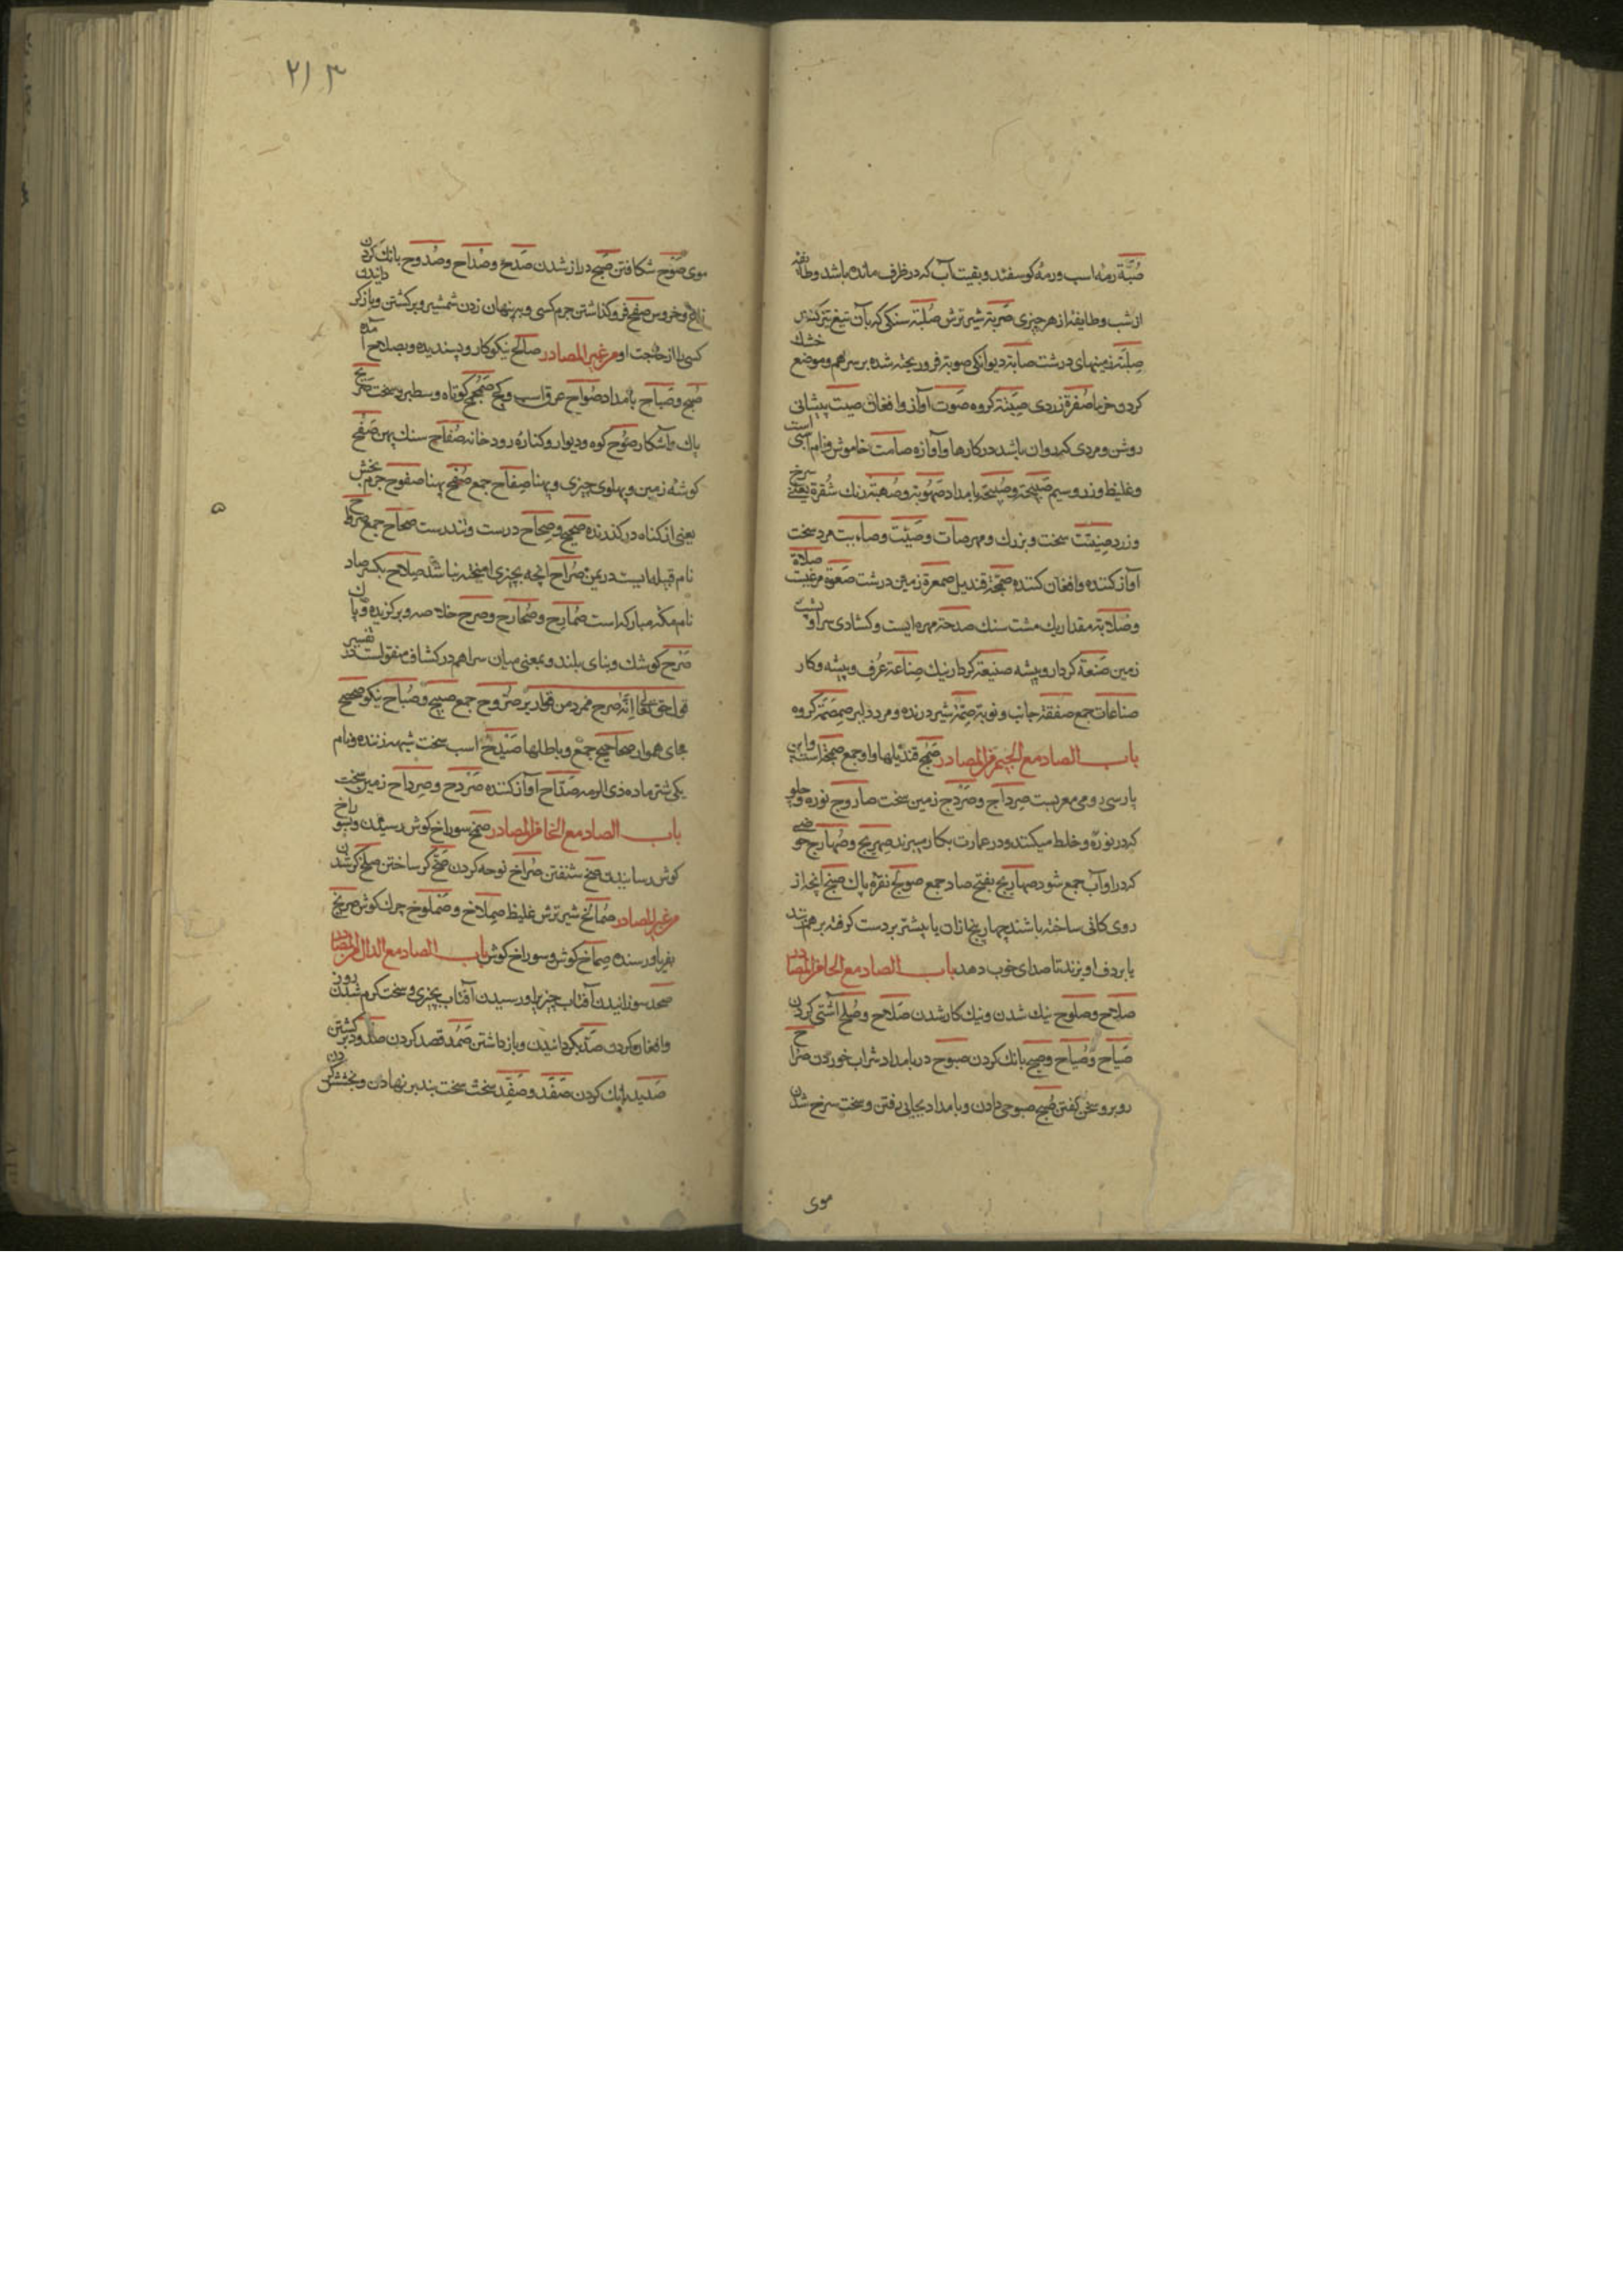 صُبَّة رمهٔ اسب ورمهٔ کوسفند وبقیت آب که در ظرف مانده باشد وطایفهٔ
از شب وطایفهٔ از هر چیزی صَربة شیر ترش صُلَّبَة سنکی که بآن تیغ تیز کنند
زمینهای درشت صابة دیوانکی صوبة فرو ریخته شده بر سر هم وموضع خشك
کردن خرما صُفرة زردی کروه صَوت آواز وافغان صیت پیشانی
روشن ومردی که روان باشد در کارها وآوازه صامت خاموش ونام است
وغلیظ وزر وسیم صَبیحَة وصُبحَة بامداد صُهُوبة وصُهبَة رنك شُقرة یعنی سرخ
وزرد سخت وبزرك ومهر صات وصَیِّت مرد سخت
آواز کننده وافغان کننده صَمَجَة قندیل صمعرة زمین درشت صَعوَة صلاة
وصَلابة مقدار یك مشت سنك صدحَة مهره ایست وکشادی سر او
زمین صَنعَة کردار وپیشه صنیعَة کردار نیك صِناعَة عُرف وپیشه وکار
صناعات جمع صفقة جانب ونوبة صِمَّة شیر درنده ومرد دلیر صِمصِمَة کروه
باب الصاد مع الجیم من المصادر صَمَج قندیلها واو جمع صمجة است واین
پارسی رومی معربست صِرداج وصَردَج زمین سخت صاروج نوره
که در نوره وخلط میکنند ودر عمارت بکار میبرند صِهریج وصُهارِج حوضی
که در او آب جمع شود صهاریج بفتح صاد جمع صولَج نقرهٔ پاك صَنج آنچه از
روی کانی ساخته باشند چهار پنج از آن یا بیشتر بر دست کرفته بر هم زنند
یا بر دف آویزند تا صدای خوب دهد باب الصاد مع الحا من المصادر
صلاح وصلوح نیك شدن ونیك کار شدن صَلاح وصُلح آشتی کردن
صَیاح وصُیاح وصَیح بانك کردن صبوح در بامداد شراب خوردن صُراح
روبرو سخن کفتن صَبح صبوحی دادن وبامداد بجایی رفتن وسخت سرخ شدن
موی
۲۱۳
موی صَوح شکافتن صَبَح دراز شدن صَدح وصُداح وصُدوح بانك کردن
زاغ وخروس صفح فرو کذاشتن جرم کسی وبه پنهان زدن شمشیر وبر کشتن وباز کردانیدن
کسی را از حاجت او من غیر المصادر صالح نیکوکار وپسندیده وبصلاح آمده
صُبح وصَباح بامداد صُواح عرق اسب وکچ صَمَحمَح کوتاه وسطبر وسخت صریح
پاك وآشکار صُوح کوه ودیوار وکنارهٔ رود خانه صُفّاح سنك پهن صَفح
کوشهٔ زمین وپهلوی چیزی وپهنا صِفاح جمع صُفح پهنا صفوح جرم بخش
یعنی از کناه در کذرنده صحیح وصِحاح درست وتندرست صَحاح جمع
نام قبیله ایست در یمن صُراح آنچه بچیزی آمیخته نباشد صِلاح بکسر صاد
نام مکهٔ مبارکه است صُمارح وصُحارح وصرح خلاصه وبرکزیده وپاك
صَرح کوشك وبنای بلند وبمعنی میان سرا هم در کشاف منقولست در تفسیر
قول حق تعالی اِنَّه صرح ممرد من قواریر صُروح جمع صَبیح وصُباح نیکو صحصح
جای هموار صحاصح جمع وباطلها صَیدَح اسب سخت شیهه زننده ونام
یکی شتر ماده ذی الرمه صَدّاح آواز کننده صَردَح وصِرداح زمین سخت
باب الصاد مع الخا من المصادر صمخ سوراخ کوش رسیدن وبسوراخ
کوش رسانیدن صَخ شنفتن صُراخ نوحه کردن صَخ کر ساختن صلخ کر شدن
من غیر المصادر صُمالِخ شیر ترش غلیظ صِملاخ وصُملوخ چرك کوش صریخ
بفریاد رسنده صِماخ کوش وسوراخ کوش باب الصاد مع الدال من المصادر
صخد سوزانیدن آفتاب چیزی را ورسیدن آفتاب بچیزی وسخت کرم شدن روز
وافغان کردن صَدّ بکردانیدن وباز داشتن صَمد قصد کردن صدود بر کشتن
صَدید بانك کردن صَفَد وصَفد سخت سخت بند بر نهادن وبخشش کردن